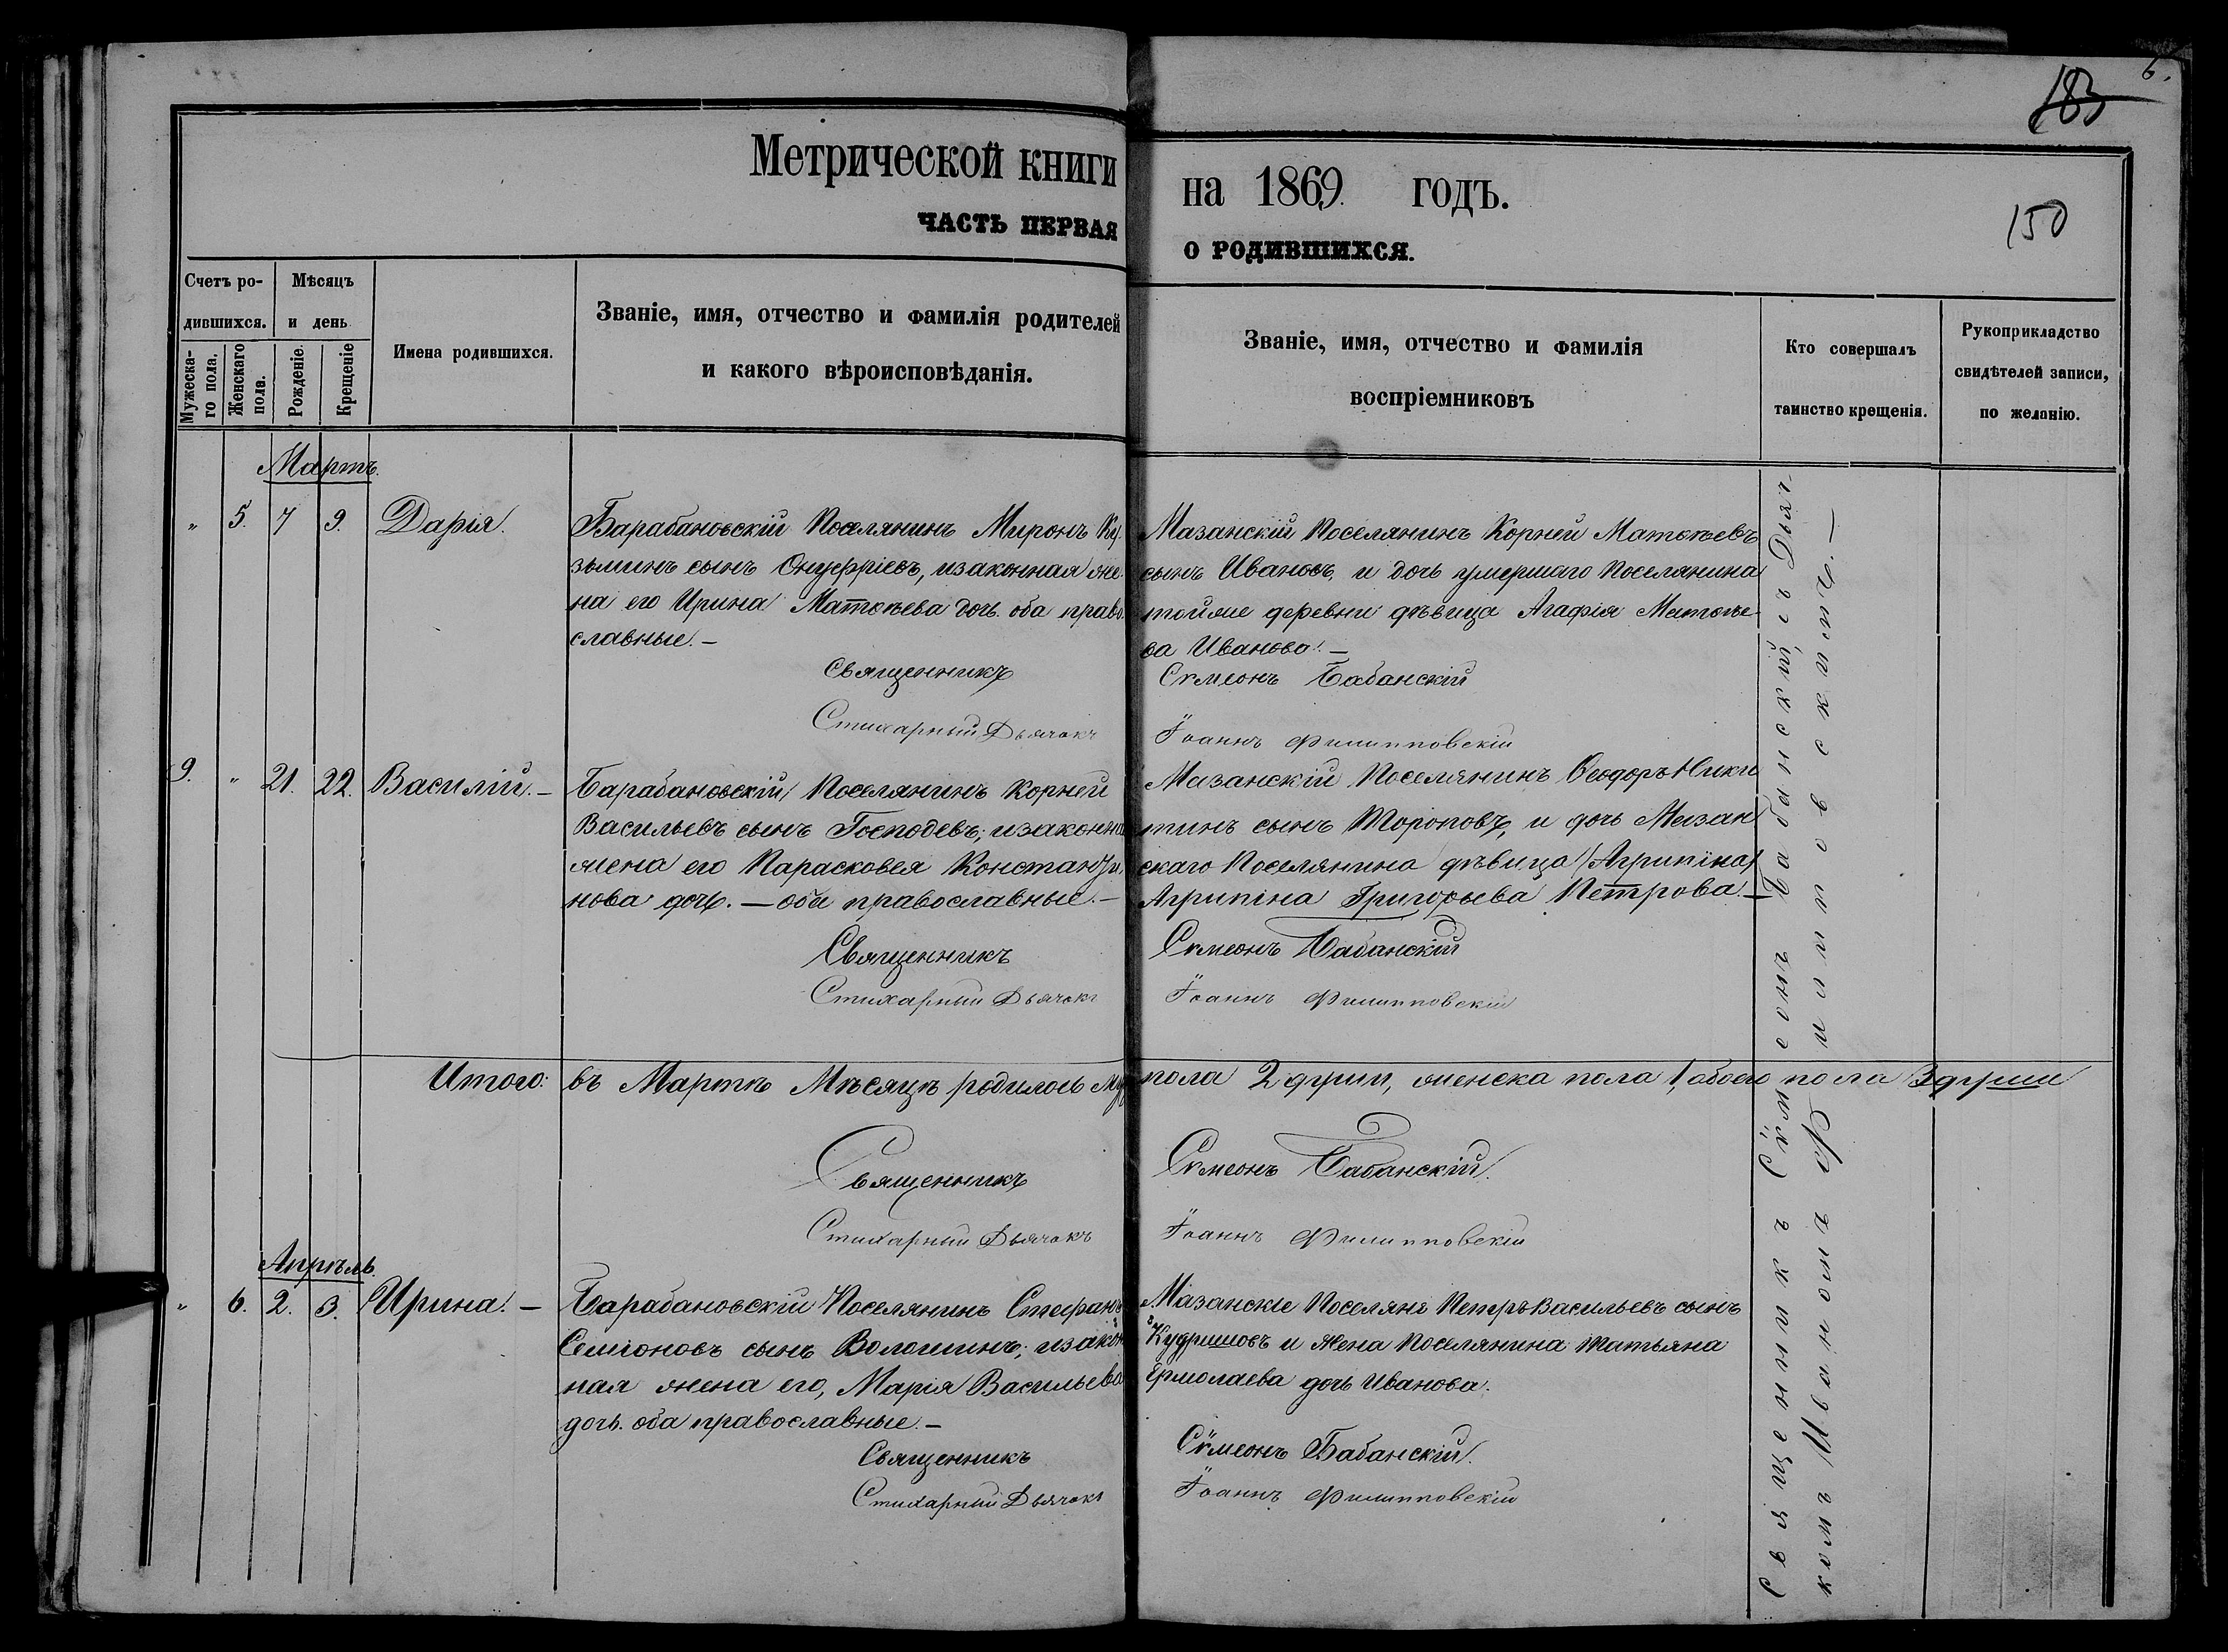 6.
183
150
Метрической книги на 1869 годъ.
ЧАСТЬ ПЕРВАЯ О РОДИВШИХСЯ.
Счетъ ро-
дившихся.
Мужеска-
го пола.
Женскаго
пола.
Мѣсяцъ
и день
Рожденіе.
Крещеніе
Имена родившихся.
Званіе, имя, отчество и фамилія родителей
и какого вѣроисповѣданія.
Званіе, имя, отчество и фамилія
воспріемниковъ
Кто совершалъ
таинство крещенія.
Рукоприкладство
свидѣтелей записи,
по желанію.
Мартъ.
" 5. 7 9. Дарія.
Барабановскій Поселянинъ Миронъ Ку-
зьминъ сынъ Онуфріевъ, изаконная же-
на его Ирина Матвѣева дочь. оба право-
славные. —
Священникъ
Стихарный Дьячокъ
Мазанскій Поселянинъ Корней Матвѣевъ
сынъ Ивановъ, и дочь умершаго Поселянина
тойже деревни дѣвица Агафія Матвѣе-
ва Иванова. —
Сѵмеонъ Бабанскій
Іоаннъ Филипповскій
9. " 21. 22. Василій. —
Барабановскій Поселянинъ Корней
Васильевъ сынъ Господевъ; изаконная
жена его Парасковея Константи-
нова дочь. — оба православные. —
Священникъ
Стихарный Дьячокъ
Мазанскій Поселянинъ Ѳеодоръ Ники
тинъ сынъ Тороповъ, и дочь Мазан
скаго Поселянина дѣвица (Агрипина)
Агрипіна Григорьева Петрова. —
Сѵмеонъ Бабанскій
Іоаннъ Филипповскій
Итого: въ Мартѣ Мѣсяцѣ родилось муж пола 2 души, женска пола 1, обоего пола 3 души
Священникъ
Стихарный Дьячокъ
Сѵмеонъ Бабанскій.
Іоаннъ Филипповскій
Апрѣль.
" 6. 2. 3. Ирина. —
Барабановскій Поселянинъ Стефанъ
Семіоновъ сынъ Волошинъ; изакон
ная жена его, Марія Васильева
дочь. оба православные. —
Священникъ
Стихарный Дьячокъ
Мазанскіе Поселяне Петръ Васильевъ сынъ
Кудряшовъ и жена Поселянина Татьяна
Ермолаева дочь Иванова.
Сѵмеонъ Бабанскій.
Іоаннъ Филипповскій
Священникъ Сѵмеонъ Бабанскій, съ Дьяч-
комъ Иваномъ Филиповскимъ. —